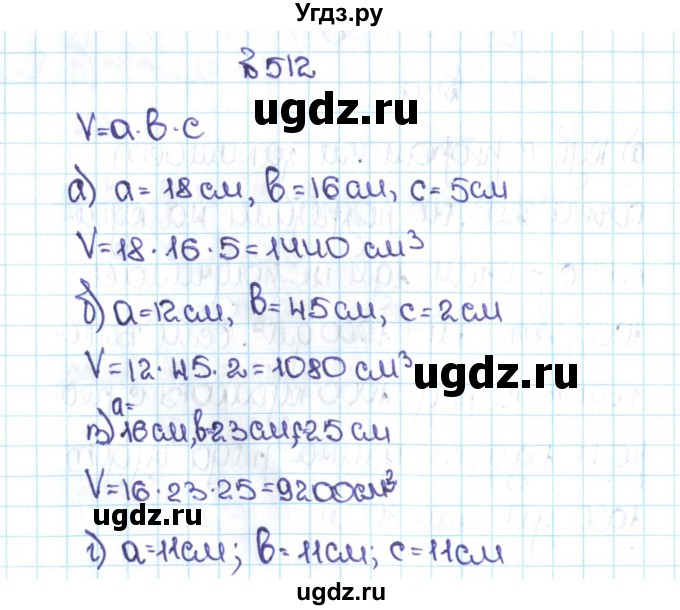 Угдз.ру
№ 512
ugdz.ru
V=a·b·c
а) a= 18 см, b=16см, c= 5см
V=18·16·5=1440 см³
б) a=12см, b=45см, c=2см
V=12·45·2=1080 см³
ugdz.ru
a=
в) 16см, b=23см, c=25 см
V=16·23·25=9200см³
ugdz.ru
г) a=11см; b=11см; c=11см
ugdz.ru